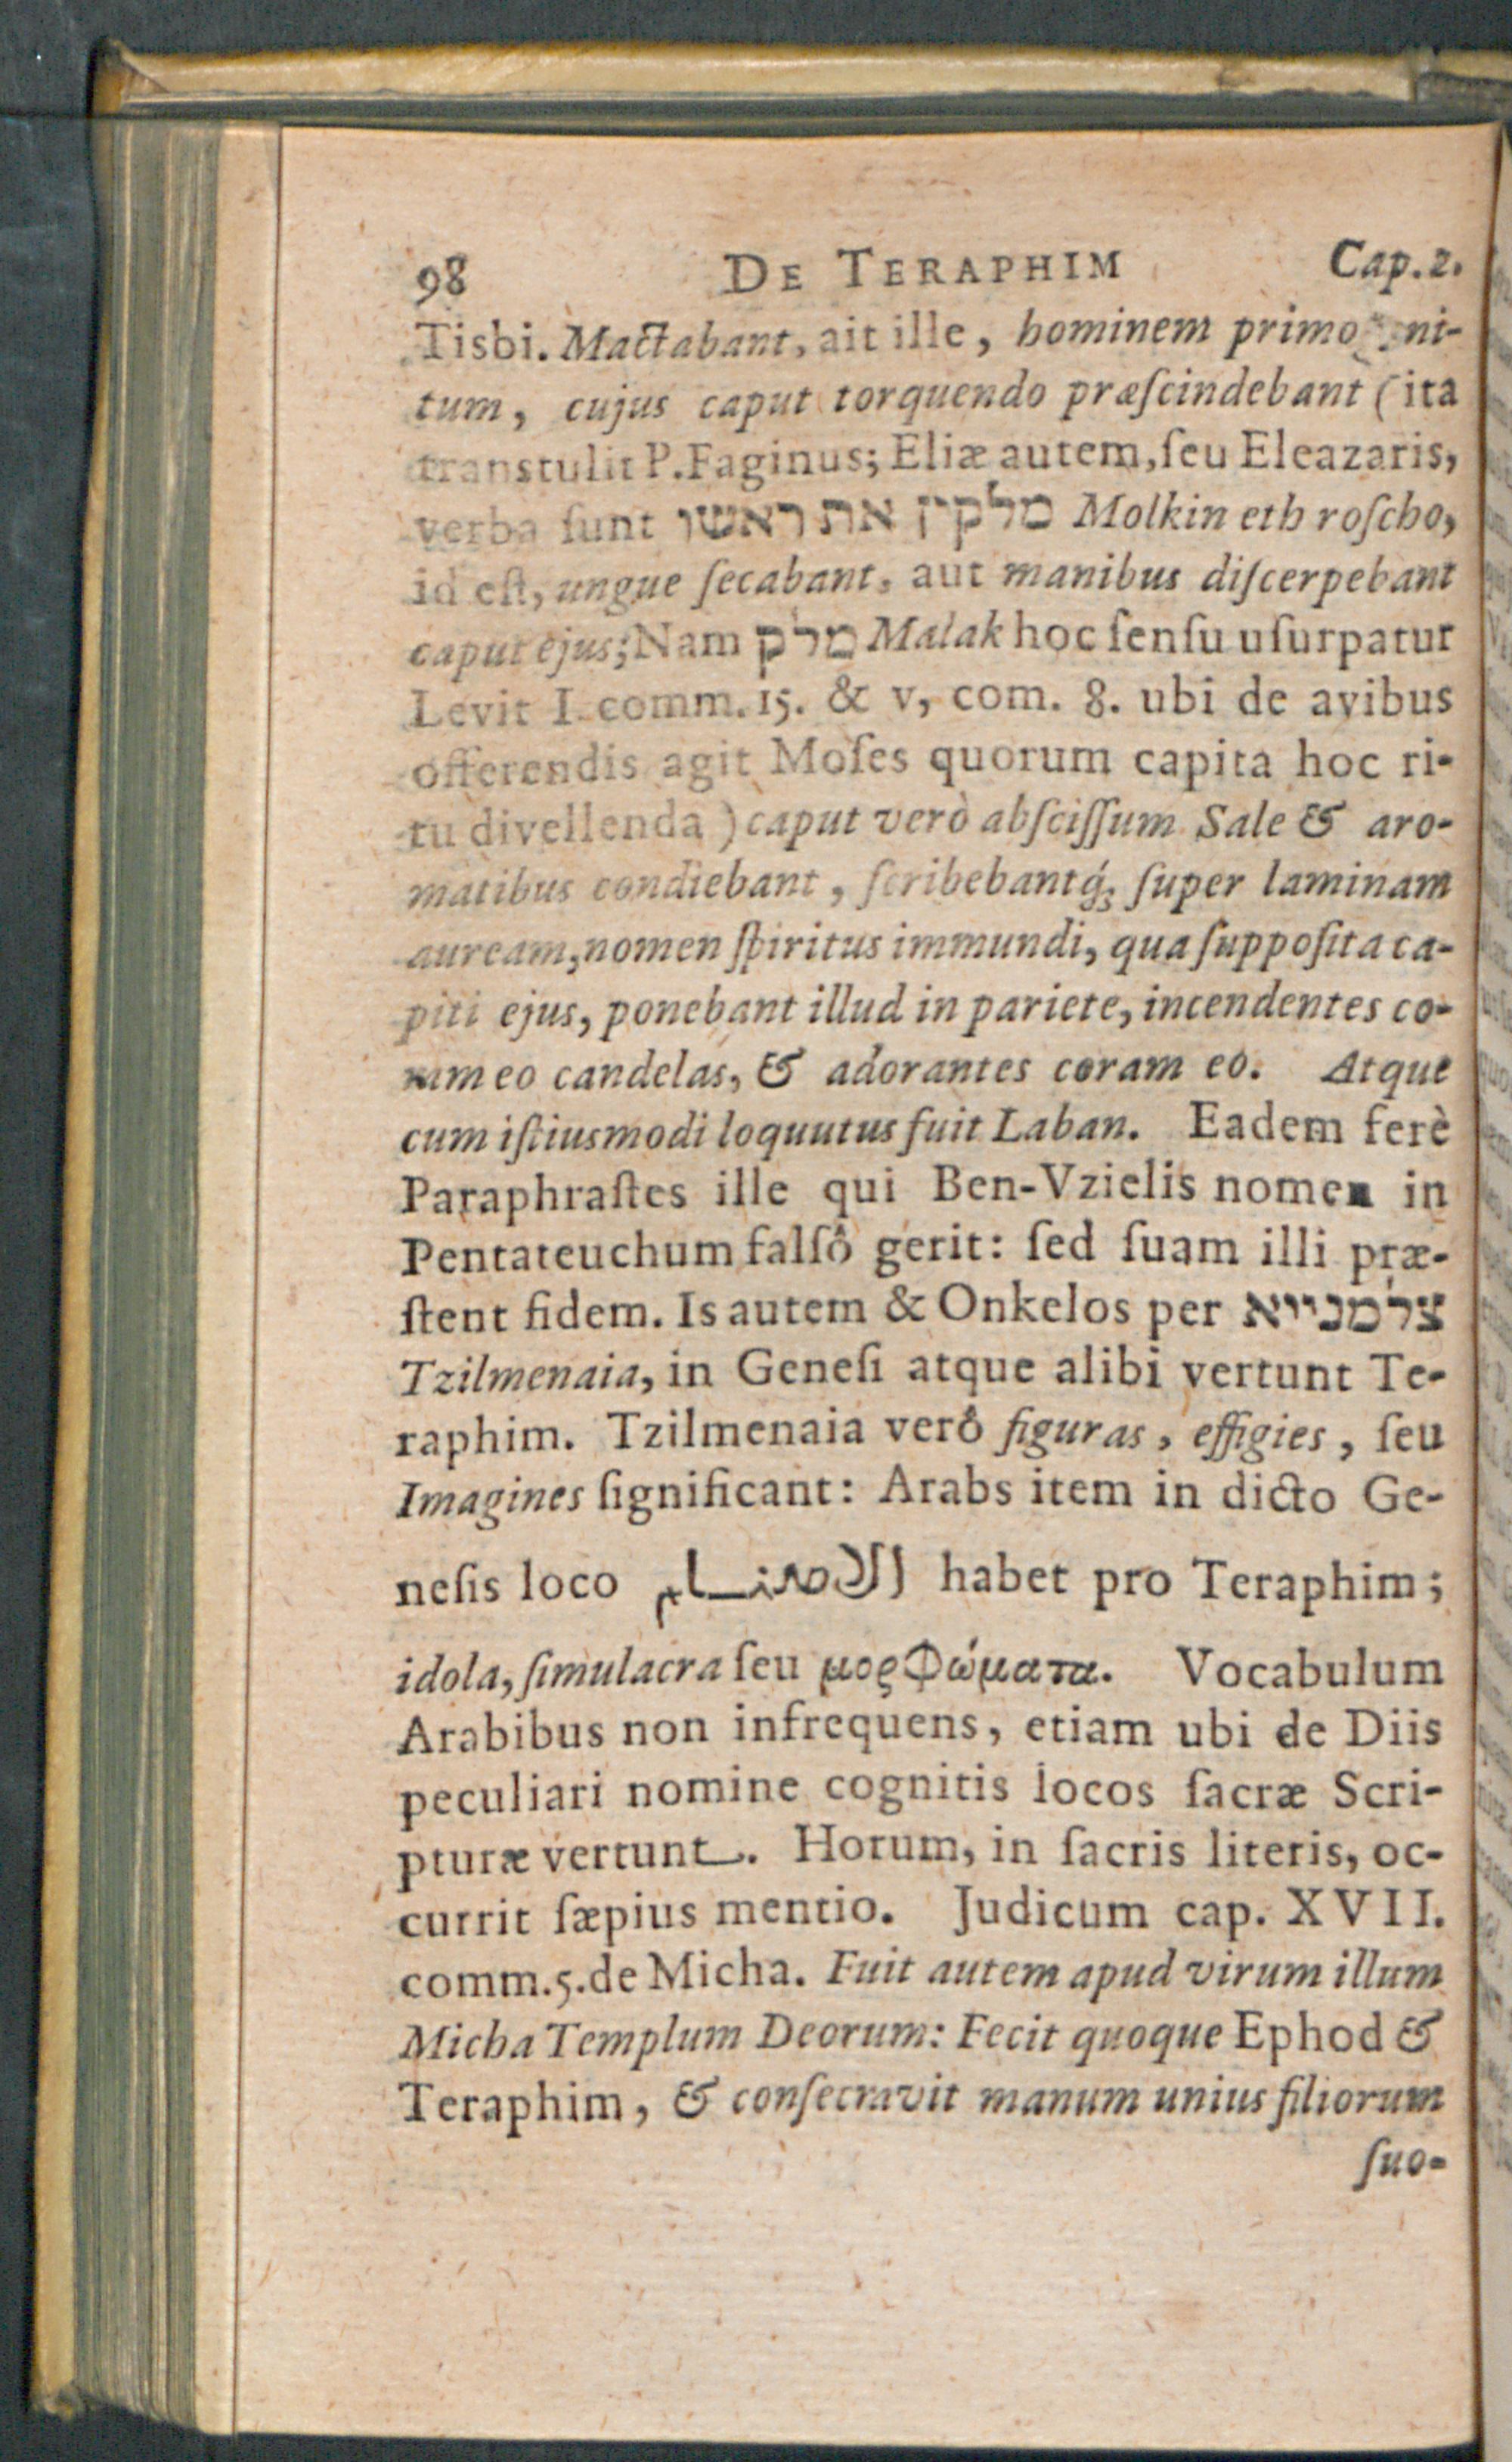 98 DE TERAPHIM Cap. 2.
Tisbi. Mactabant, ait ille, hominem primo ni-
tum, cujus caput torquendo præſcindebant (ita
transtulit P. Faginus; Eliæ autem, ſeu Eleazaris,
verba ſunt מלקין את ראשו Molkin eth roſcho,
id eſt, ungue ſecabant, aut manibus diſcerpebant
caput ejus; Nam מלק Malak hoc ſenſu uſurpatur
Levit I. comm. 15. & v, com. 8. ubi de avibus
offerendis agit Moſes quorum capita hoc ri-
tu divellenda) caput verò abſciſſum Sale & aro-
matibus condiebant, ſcribebantq́; ſuper laminam
auream, nomen ſpiritus immundi, qua ſuppoſita ca-
piti ejus, ponebant illud in pariete, incendentes co-
ram eo candelas, & adorantes coram eo. Atque
cum iſtiusmodi loquutus fuit Laban. Eadem ferè
Paraphraſtes ille qui Ben-Vzielis nomen in
Pentateuchum falſô gerit: ſed ſuam illi præ-
ſtent fidem. Is autem & Onkelos per צלמנייא
Tzilmenaia, in Geneſi atque alibi vertunt Te-
raphim. Tzilmenaia verô figuras, effigies, ſeu
Imagines ſignificant: Arabs item in dicto Ge-
neſis loco الاصنـام habet pro Teraphim;
idola, ſimulacra ſeu μορφώματα. Vocabulum
Arabibus non infrequens, etiam ubi de Diis
peculiari nomine cognitis locos ſacræ Scri-
pturæ vertunt. Horum, in ſacris literis, oc-
currit ſæpius mentio. Judicum cap. XVII.
comm. 5. de Micha. Fuit autem apud virum illum
Micha Templum Deorum: Fecit quoque Ephod &
Teraphim, & conſecravit manum unius filiorum
ſuo-